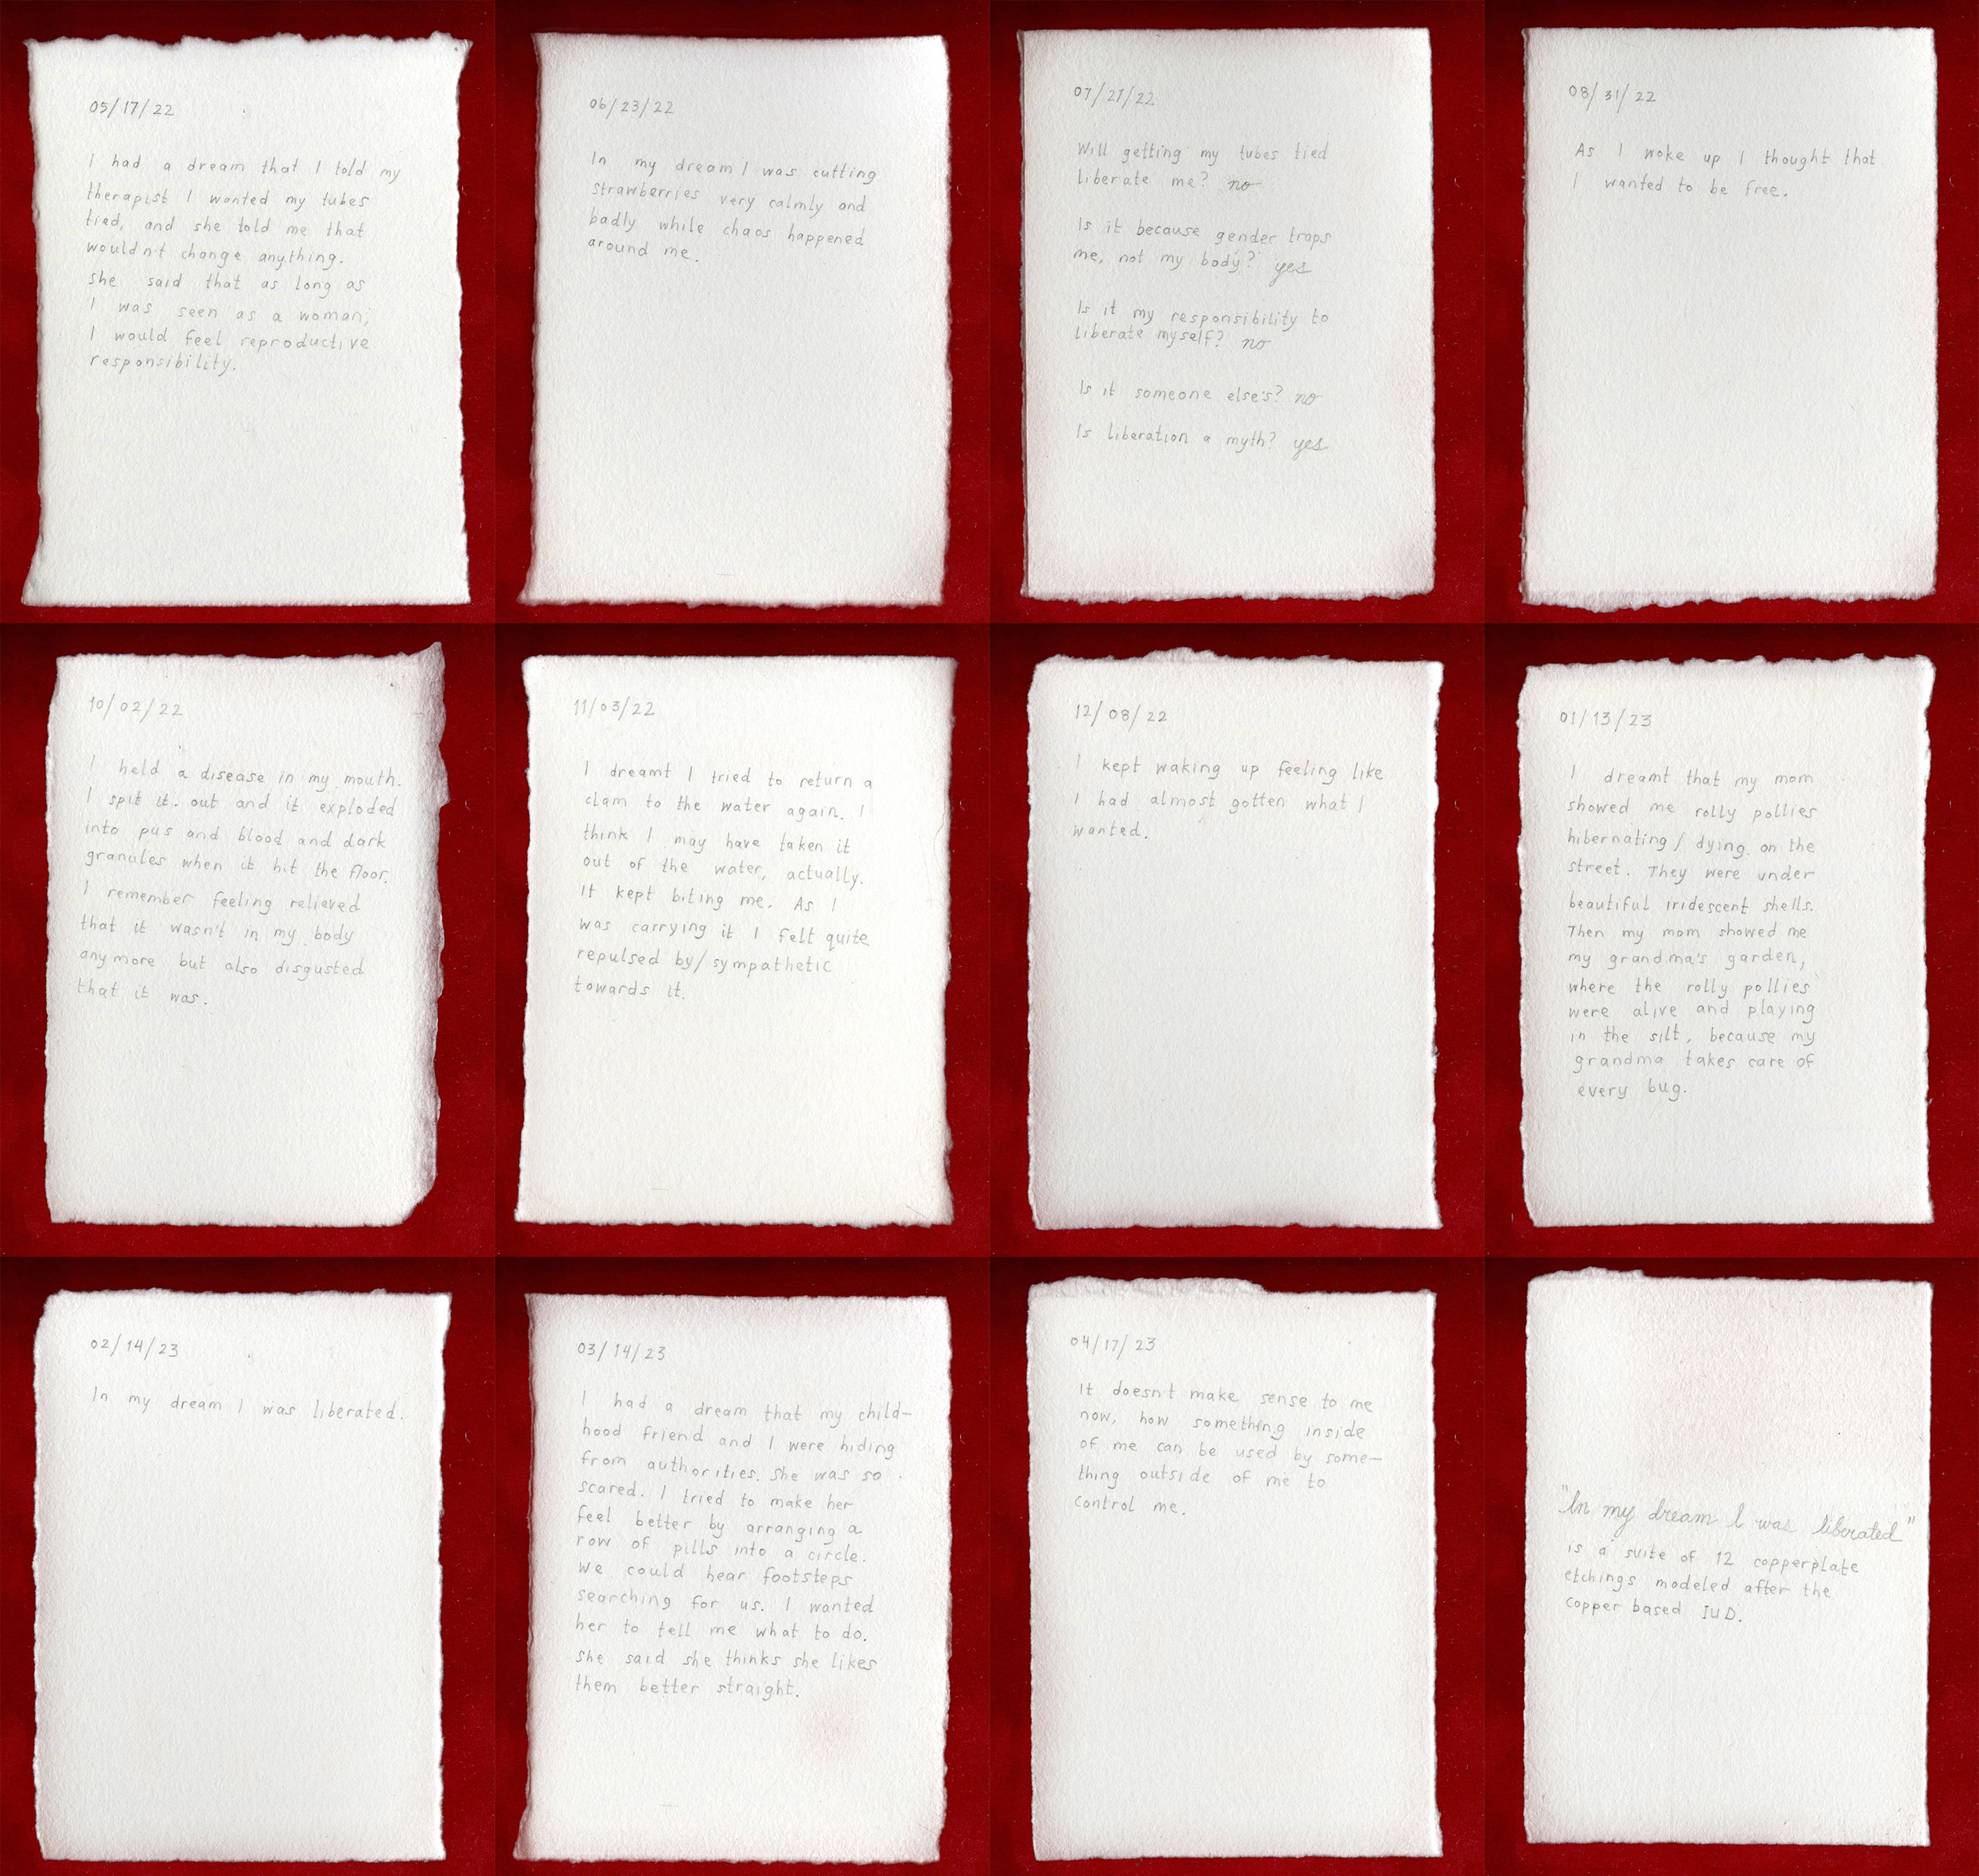 05/17/22
I had a dream that I told my
therapist I wanted my tubes
tied, and she told me that
wouldn't change anything.
she said that as long as
I was seen as a woman,
I would feel reproductive
responsibility.
06/23/22
In my dream I was cutting
strawberries very calmly and
badly while chaos happened
around me.
07/27/22
Will getting my tubes tied
liberate me? no
Is it because gender traps
me, not my body? yes
Is it my responsibility to
liberate myself? no
Is it someone else's? no
Is liberation a myth? yes
08/31/22
As I woke up I thought that
I wanted to be free.
10/02/22
I held a disease in my mouth.
I spit it out and it exploded
into pus and blood and dark
granules when it hit the floor.
I remember feeling relieved
that it wasn't in my body
anymore but also disgusted
that it was.
11/03/22
I dreamt I tried to return a
clam to the water again. I
think I may have taken it
out of the water, actually.
It kept biting me. As I
was carrying it I felt quite
repulsed by/sympathetic
towards it.
12/08/22
I kept waking up feeling like
I had almost gotten what I
wanted.
01/13/23
I dreamt that my mom
showed me rolly pollies
hibernating/dying on the
street. They were under
beautiful iridescent shells.
Then my mom showed me
my grandma's garden,
where the rolly pollies
were alive and playing
in the silt, because my
grandma takes care of
every bug.
02/14/23
In my dream I was liberated.
03/14/23
I had a dream that my child-
hood friend and I were hiding
from authorities. She was so
scared. I tried to make her
feel better by arranging a
row of pills into a circle.
We could hear footsteps
searching for us. I wanted
her to tell me what to do.
She said she thinks she likes
them better straight.
04/17/23
It doesn't make sense to me
now, how something inside
of me can be used by some-
thing outside of me to
control me.
"In my dream I was liberated"
is a suite of 12 copperplate
etchings modeled after the
copper based IUD.